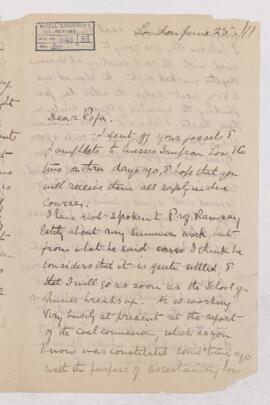 London June 25th
Dear Papa,
I sent off your fossils &
pamphlets to Messrs Simpson Low & Co
two or three days ago, & hope that you
will receive them all safely in due
course.
I have not spoken to Prof. Ramsay
lately about my summer work, but
from what he said I think he
considers that it is quite settled, &
that I will go as soon as the School of
Mines breaks up. He is working
very busily at present at the report
of the coal commission, which as you
know was constituted some time ago
with the purpose of ascertaining how